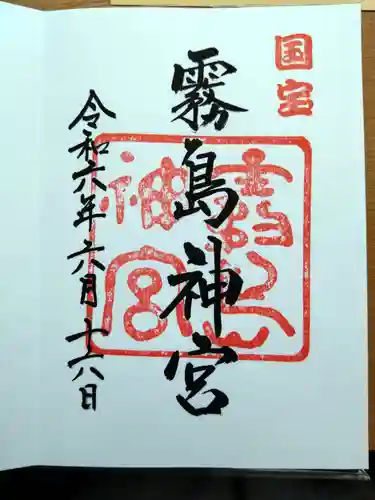 国宝
霧島神宮
霧島神宮
令和六年六月十六日